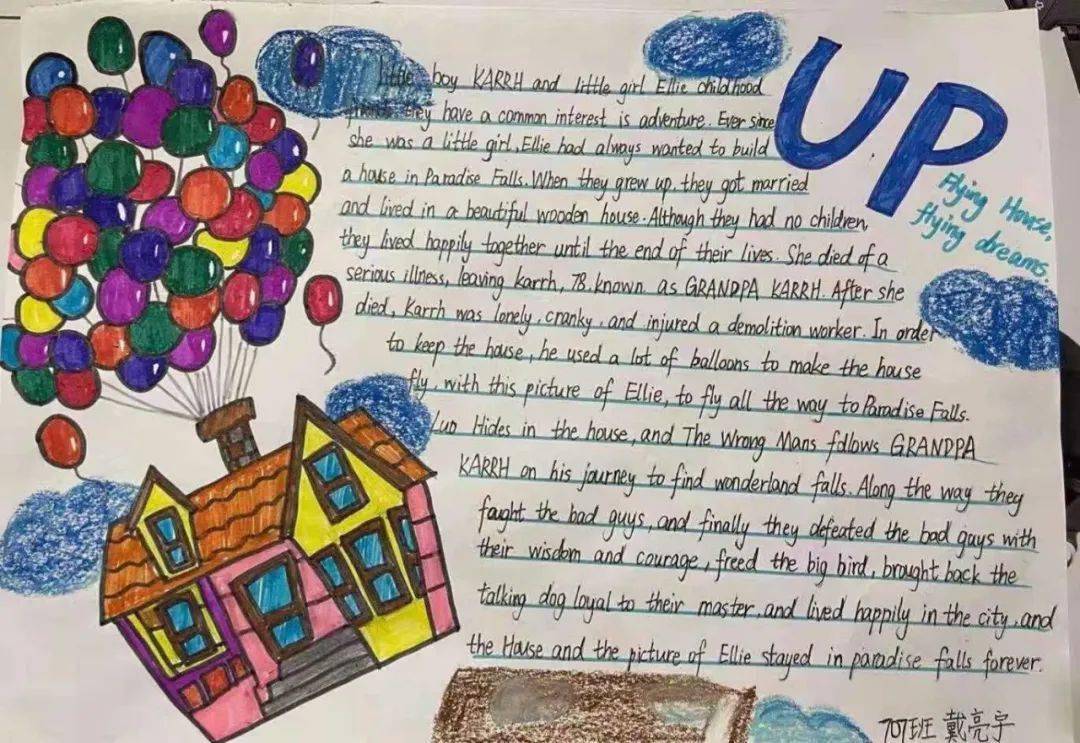 UP
Flying House,
flying dreams.
little boy KARRH and little girl Ellie childhood
they have a common interest is adventure. Ever since
she was a little girl, Ellie had always wanted to build
a house in Paradise Falls. When they grew up, they got married
and lived in a beautiful wooden house. Although they had no children,
they lived happily together until the end of their lives. She died of a
serious illness, leaving karrh, 78. known as GRANDPA KARRH. After she
died, Karrh was lonely, cranky, and injured a demolition worker. In order
to keep the house, he used a lot of balloons to make the house
fly, with this picture of Ellie, to fly all the way to Paradise Falls.
Hides in the house, and The Wrong Mans follows GRANDPA
KARRH on his journey to find wonderland falls. Along the way they
faught the bad guys, and finally they defeated the bad guys with
their wisdom and courage, freed the big bird, brought back the
talking dog loyal to their master, and lived happily in the city, and
the House and the picture of Ellie stayed in paradise falls forever.
707班 戴亮宇